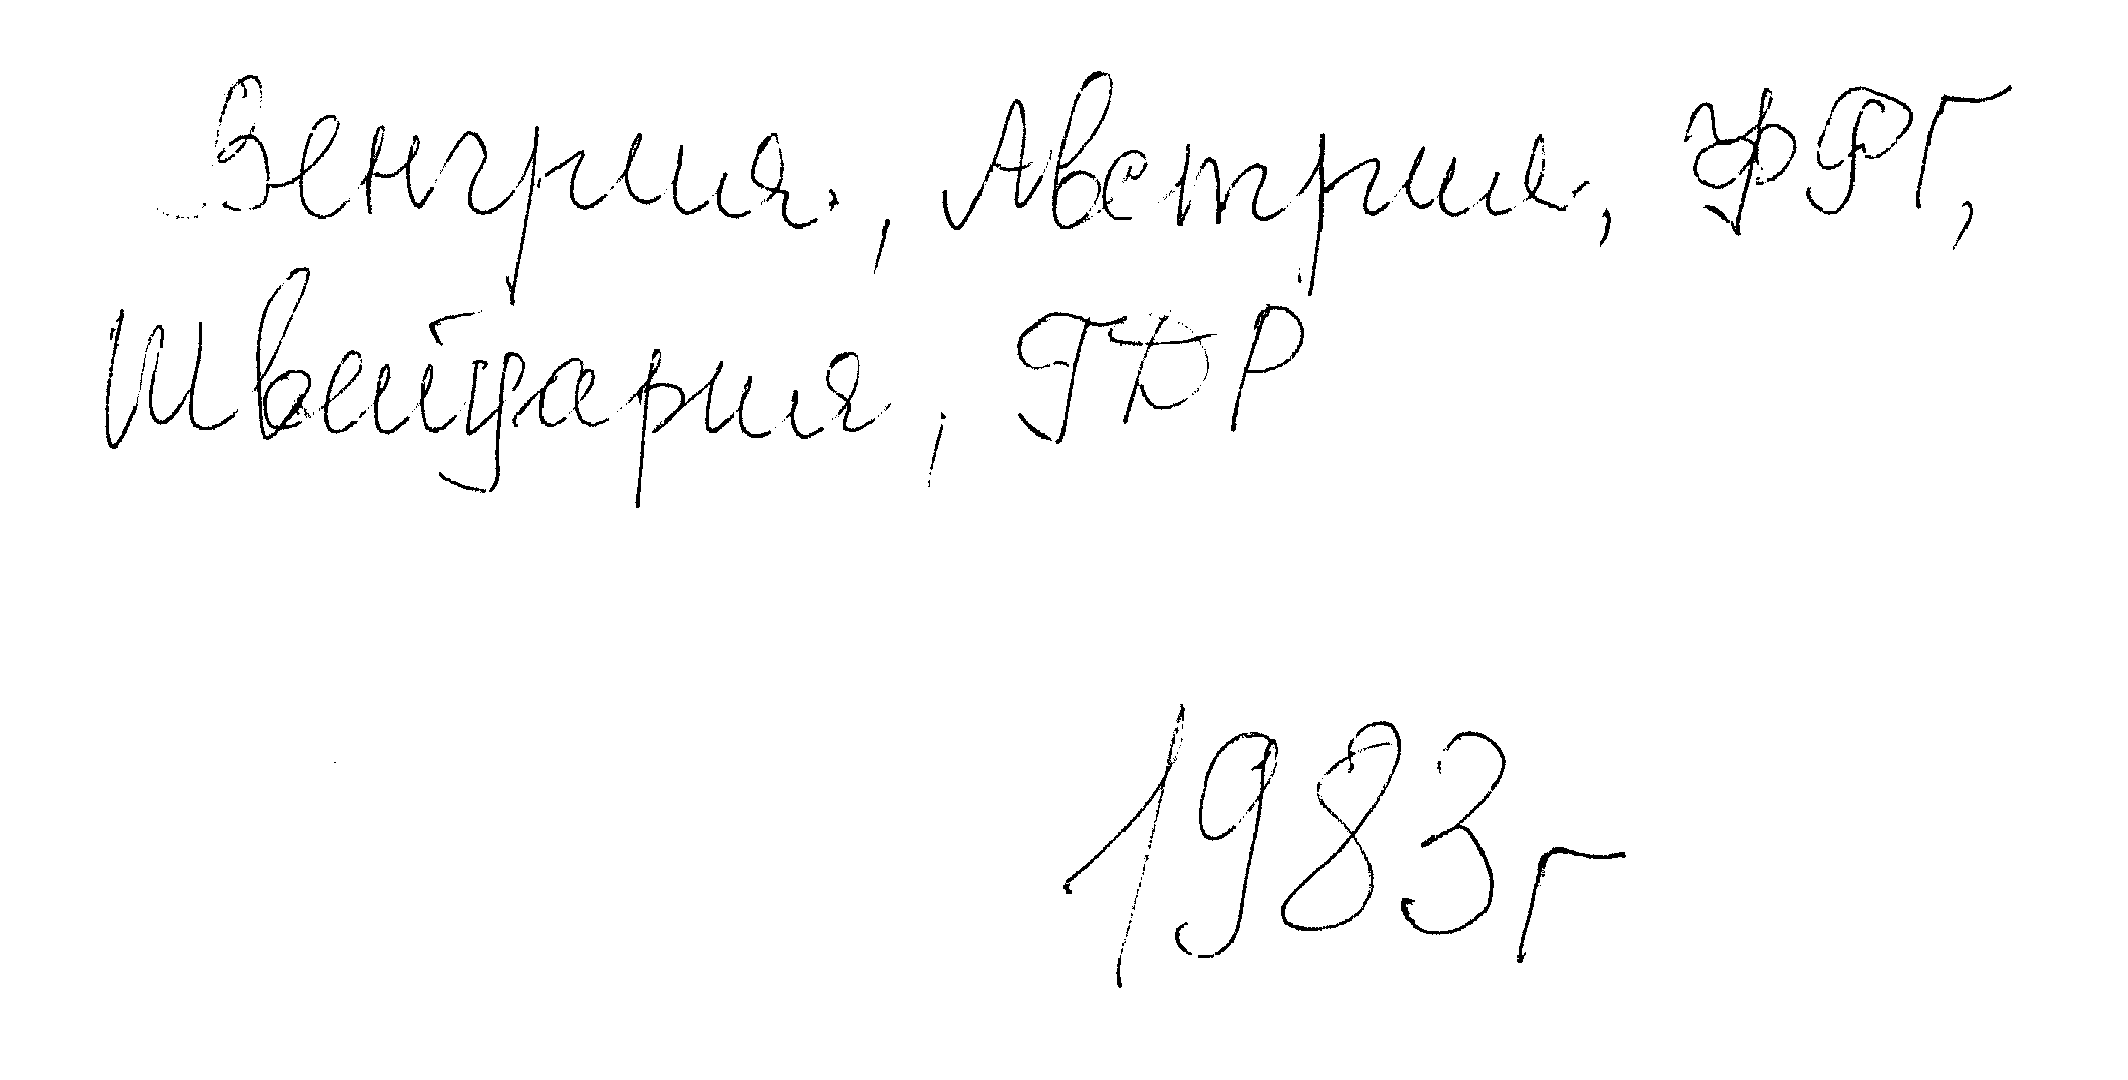 Венгрия, Австрия, ФРГ,
Швейцария, ГДР
1983г